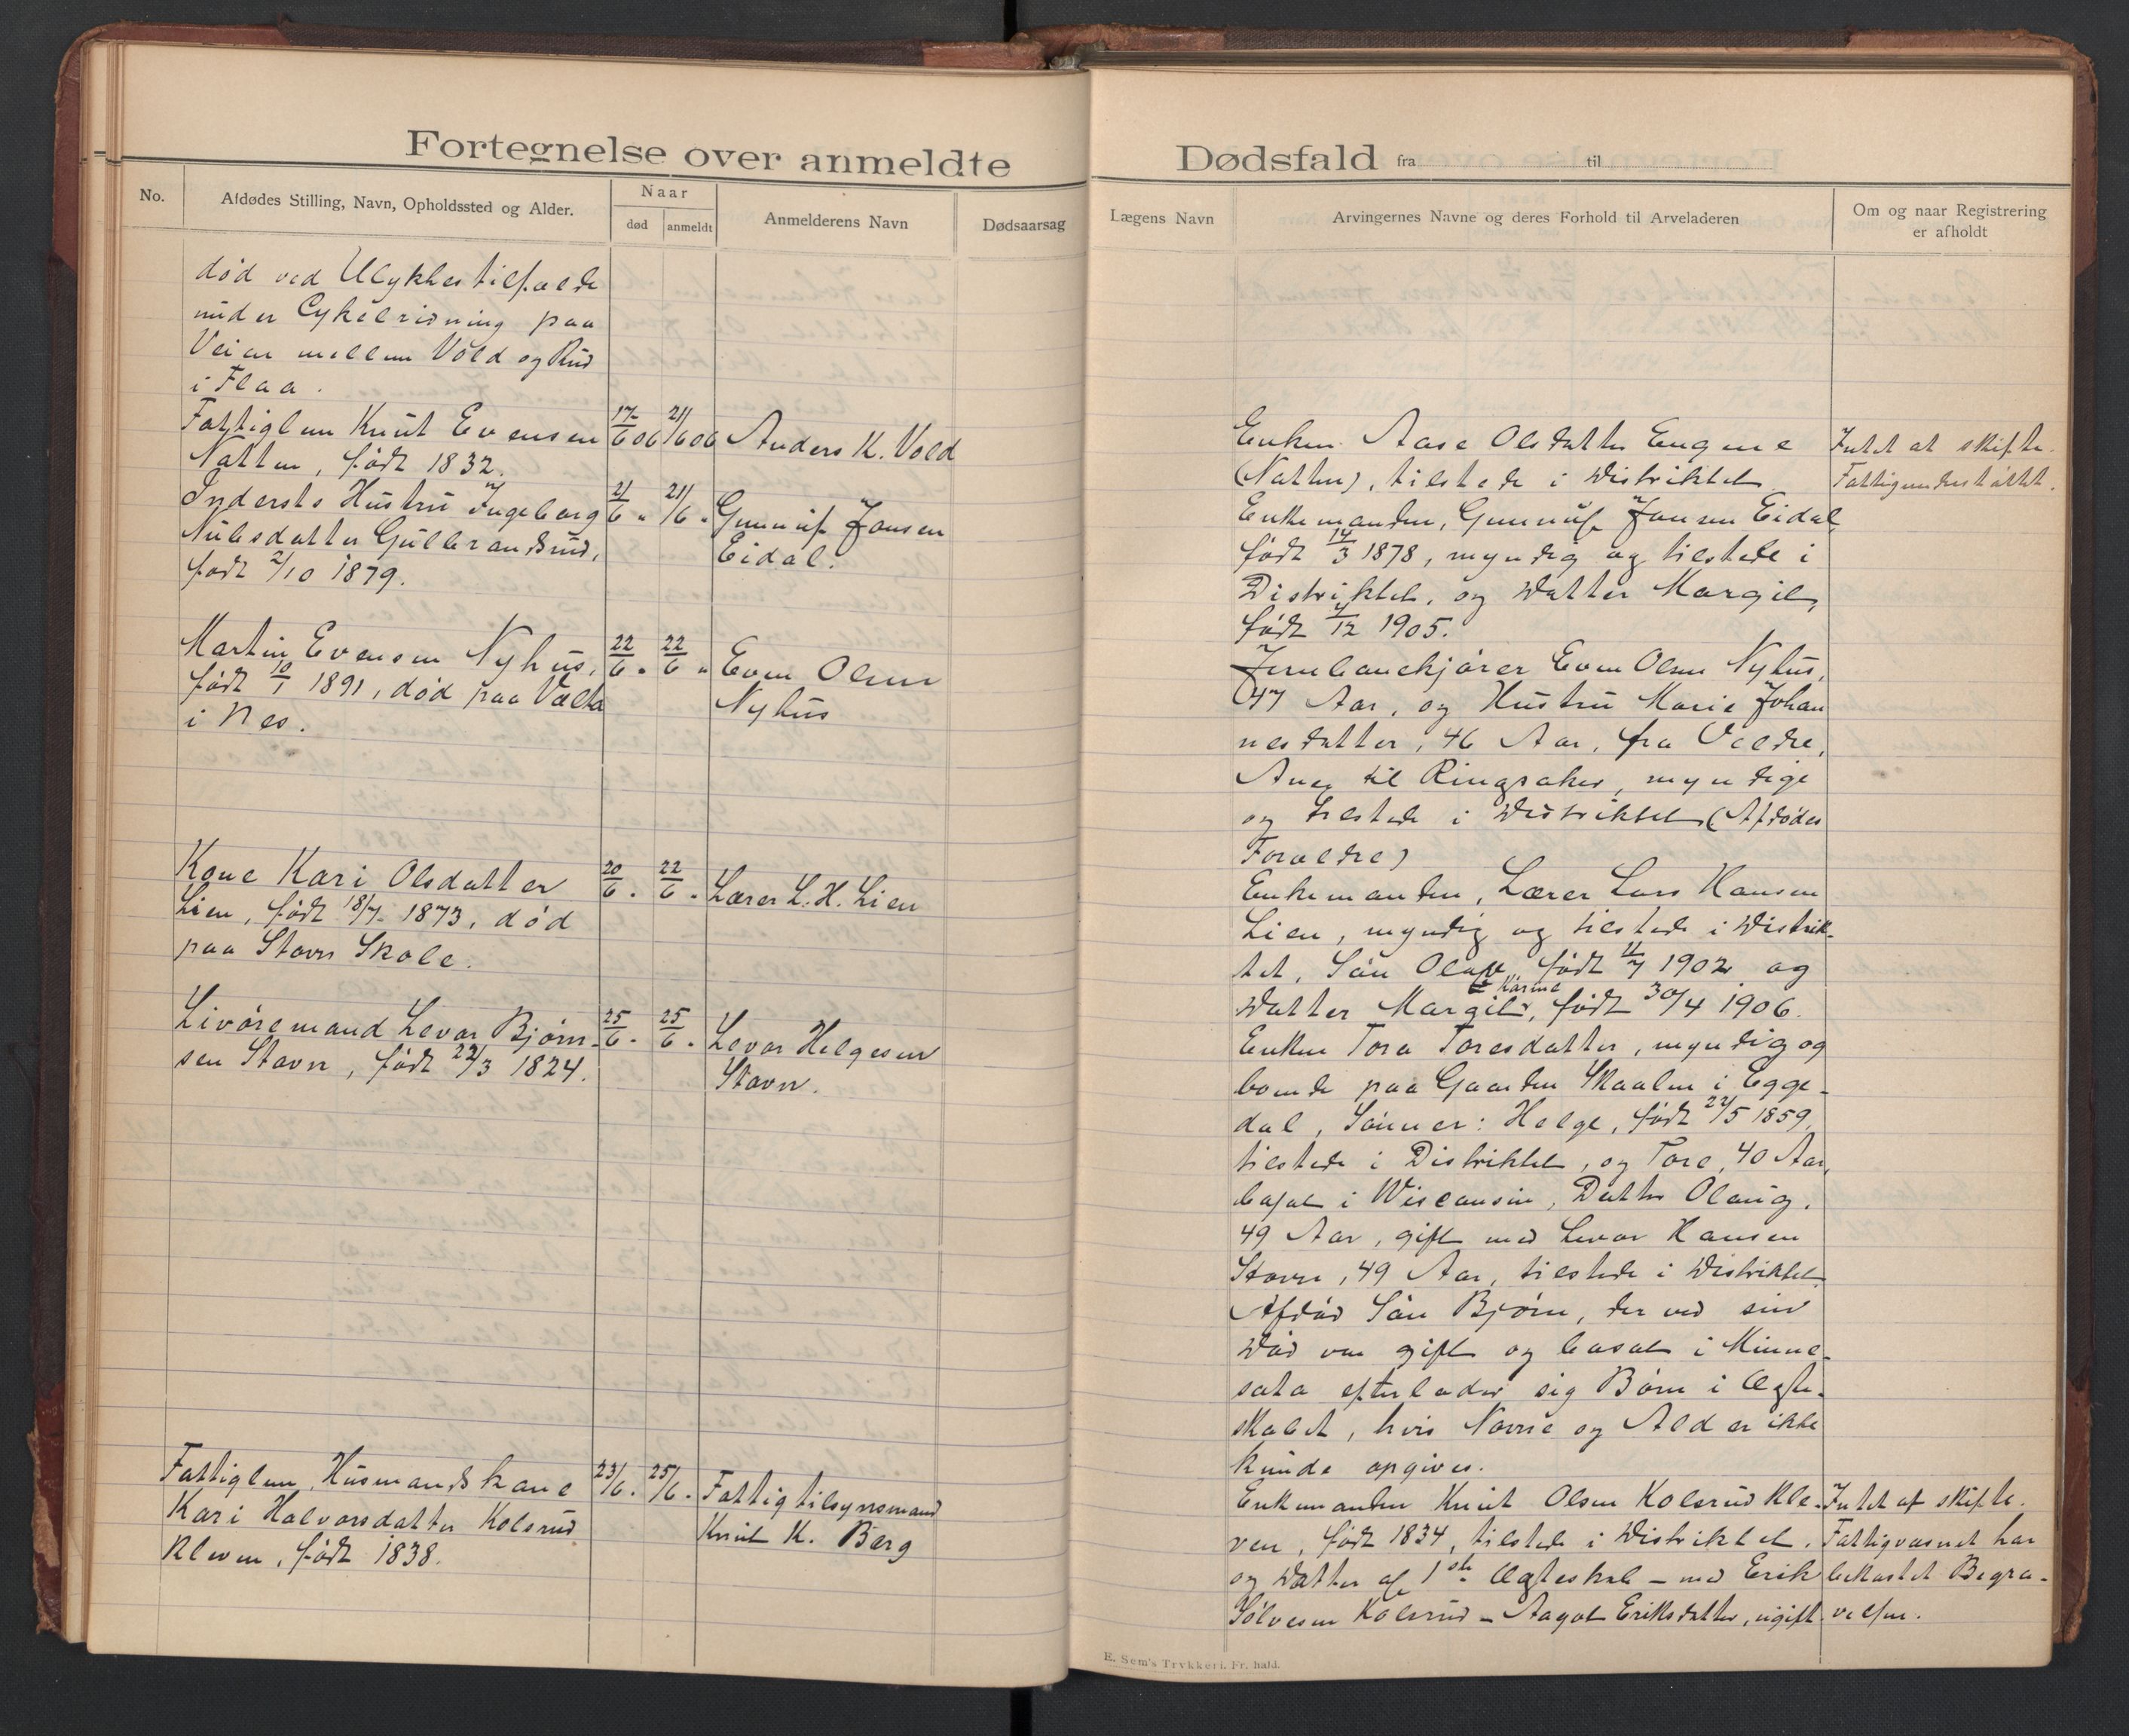 Fortegnelse over anmeldte
No.
Afdødes Stilling, Navn, Opholdssted og Alder.
Naar
død
anmeldt
Anmelderens Navn
Dødsaarsag
død ved Ulykkestilfælde
under Cykelridning paa
Veien mellem Vold og Rud
i Flaa.
Fattiglem Knut Evensen 17/6 06 21/6 06 Anders K. Vold
Natten, født 1832.
Indersts Hustru Ingeborg 21/6 " 21/6 " Gunnulf Jonsen
Nubsdatter Gulbrandsrud, Eidal.
født 2/10 1879.
Martin Evensen Nyhus, 22/6 " 22/6 " Even Olsen
født 10/1 1891, død paa Vælta Nyhus
i Nes.
Kone Kari Olsdatter 20/6 " 22/6 " Lærer L. H. Lien
Lien, født 18/7 1873, død
paa Stavn Skole.
Livøremand Levor Bjørn- 25/6 " 25/6 " Levor Helgesen
sen Stavn, født 22/3 1824. Stavn.
Fattiglem, Husmandskone 23/6 " 25/6 " Fattigtilsynsmand
Kari Halvorsdatter Kolsrud Knut K. Berg
Kleven, født 1838.
Dødsfald fra til
Lægens Navn
Arvingernes Navne og deres Forhold til Arveladeren
Om og naar Registrering
er afholdt
Enken Aase Olsdatter Eugene Intet at skifte.
(Natten), tilstede i Distriktet Fattigunderstøttet.
Enkemanden, Gunnulf Jonsen Eidal
født 14/3 1878, myndig og tilstede i
Distriktet, og Datter Margit,
født /12 1905.
Jernbanekjører Even Olsen Nyhus,
47 Aar, og Hustru Marie Johan
nesdatter, 46 Aar, fra Veldre,
Anex til Ringsaker, myndige
og tilstede i Distriktet (Afdødes
Forældre)
Enkemanden, Lærer Lars Hansen
Lien, myndig og tilstede i Distrik-
tet, Søn Olav, født 11/7 1902 og
Karine
Datter Margit, født 30/4 1906.
Enken Tora Toresdatter, myndig og
boende paa Gaarden Skaalen i Egge-
dal, Sønner: Helge, født 22/5 1859,
tilstede i Distriktet, og Tore, 40 Aar,
bosat i Wisconsin, Datter Olaug,
49 Aar, gift med Levor Hansen
Stavn, 49 Aar, tilstede i Distriktet.
Afdød Søn Bjørn, der ved sin
Død var gift og bosat i Minne-
sota efterlader sig Børn i Ægte-
skabet, hvis Navne og Alder ikke
kunde opgives.
Enkemanden Knut Olsen Kolsrud Kle- Intet at skifte.
ven, født 1834, tilstede i Distriktet, Fattigvæsnet har
og Datter af 1ste Ægteskab – med Erik bekostet Begra-
Sølvesen Kolsrud – Aagot Eriksdatter, ugift velsen.
E. Sem's Trykkeri. Fr. hald.